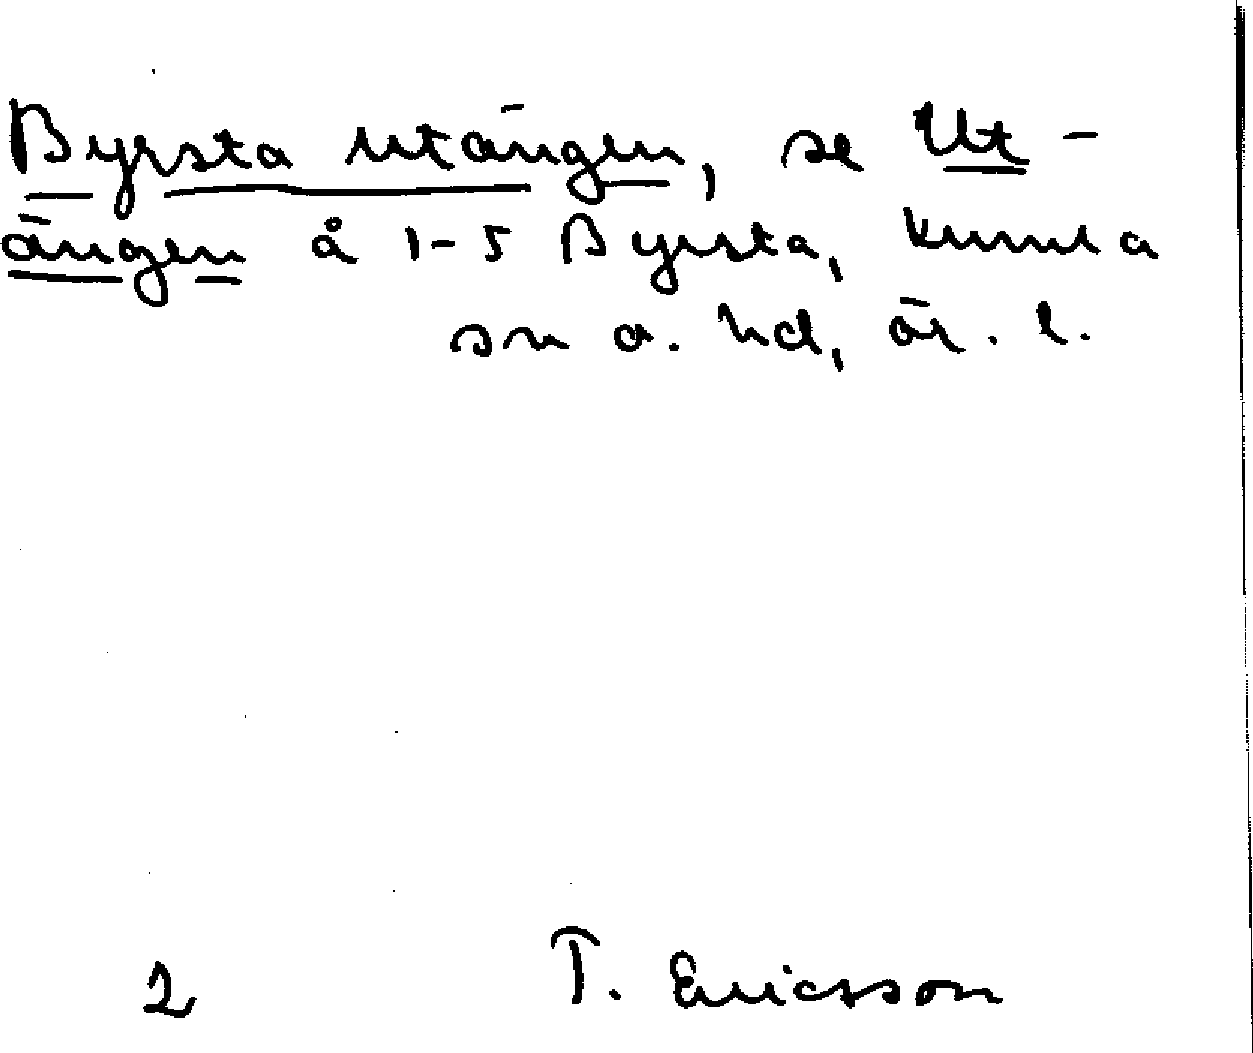 Byrsta Utängen, se Ut-
ängen å 1-5 Byrsta, Kumla
sn o. hd, ör. l.
2 T. Ericsson